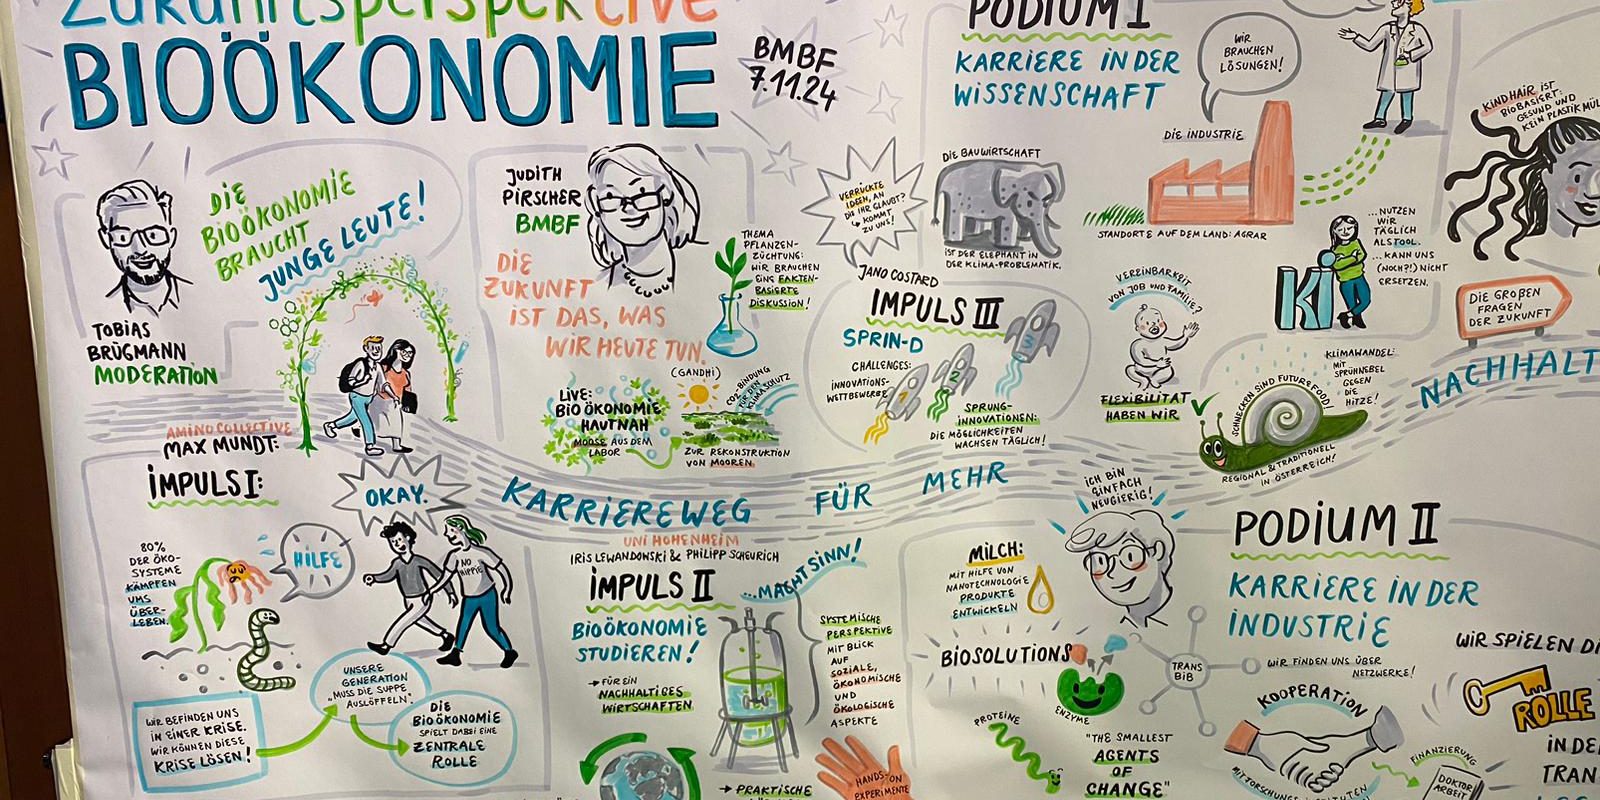 Zukunftsperspektive
BIOÖKONOMIE
BMBF
7.11.24
TOBIAS
BRÜGMANN
MODERATION
DIE
BIOÖKONOMIE
BRAUCHT
JUNGE LEUTE!
JUDITH
PIRSCHER
BMBF
DIE
ZUKUNFT
IST DAS, WAS
WIR HEUTE TUN.
(GANDHI)
THEMA
PFLANZEN-
ZÜCHTUNG:
WIR BRAUCHEN
EINE FAKTEN-
BASIERTE
DISKUSSION!
LIVE:
BIOÖKONOMIE
HAUTNAH
MOOSE AUS DEM
LABOR
CO2-BINDUNG
FÜR DEN
KLIMASCHUTZ
ZUR REKONSTRUKTION
VON MOOREN.
VERRÜCKTE
IDEEN, AN
DIE IHR GLAUBT?
↳ KOMMT
ZU UNS!
JANO COSTARD
IMPULS III
SPRIN-D
CHALLENGES:
INNOVATIONS-
WETTBEWERBE
1
2
3
SPRUNG-
INNOVATIONEN:
DIE MÖGLICHKEITEN
WACHSEN TÄGLICH!
PODIUM I
KARRIERE IN DER
WISSENSCHAFT
DIE BAUWIRTSCHAFT
IST DER ELEPHANT IN
DER KLIMA-PROBLEMATIK.
WIR
BRAUCHEN
LÖSUNGEN!
DIE INDUSTRIE
STANDORTE AUF DEM LAND: AGRAR
KINDHAIR IST
BIOBASIERT:
GESUND UND
KEIN PLASTIKMÜL
VEREINBARKEIT
VON JOB UND FAMILIE?
FLEXIBILITÄT
HABEN WIR
KI
...NUTZEN
WIR
TÄGLICH
ALS TOOL.
...KANN UNS
(NOCH?!) NICHT
ERSETZEN.
DIE GROßEN
FRAGEN
DER ZUKUNFT
SCHNECKEN SIND FUTURE FOOD!
REGIONAL & TRADITIONELL
IN ÖSTERREICH!
KLIMAWANDEL:
MIT
SPRÜHNEBEL
GEGEN
DIE
HITZE!
KARRIEREWEG FÜR MEHR NACHHALT
AMINO COLLECTIVE
MAX MUNDT:
IMPULS I:
80%
DER ÖKO-
SYSTEME
KÄMPFEN
UMS
ÜBER-
LEBEN.
HILFE
OKAY.
NO
HIPPIE
WIR BEFINDEN UNS
IN EINER KRISE.
WIR KÖNNEN DIESE
KRISE LÖSEN!
UNSERE
GENERATION
"MUSS DIE SUPPE
AUSLÖFFELN".
DIE
BIOÖKONOMIE
SPIELT DABEI EINE
ZENTRALE
ROLLE
UNI HOHENHEIM
IRIS LEWANDOWSKI & PHILIPP SCHEURICH
IMPULS II
...MACHT SINN!
BIOÖKONOMIE
STUDIEREN!
→ FÜR EIN
NACHHALTIGES
WIRTSCHAFTEN
SYSTEMISCHE
PERSPEKTIVE
MIT BLICK
AUF
SOZIALE,
ÖKONOMISCHE
UND
ÖKOLOGISCHE
ASPEKTE
→ PRAKTISCHE
HANDS-ON
EXPERIMENTE
ICH BIN
EINFACH
NEUGIERIG!
MILCH:
MIT HILFE VON
NANOTECHNOLOGIE
PRODUKTE
ENTWICKELN
BIOSOLUTIONS
ENZYME
PROTEINE
"THE SMALLEST
AGENTS
OF
CHANGE"
PODIUM II
KARRIERE IN DER
INDUSTRIE
TRANS
BIB
WIR FINDEN UNS ÜBER
NETZWERKE!
KOOPERATION
FINANZIERUNG
DOKTOR
ARBEIT
WIR SPIELEN DI
ROLLE
IN DE
TRAN